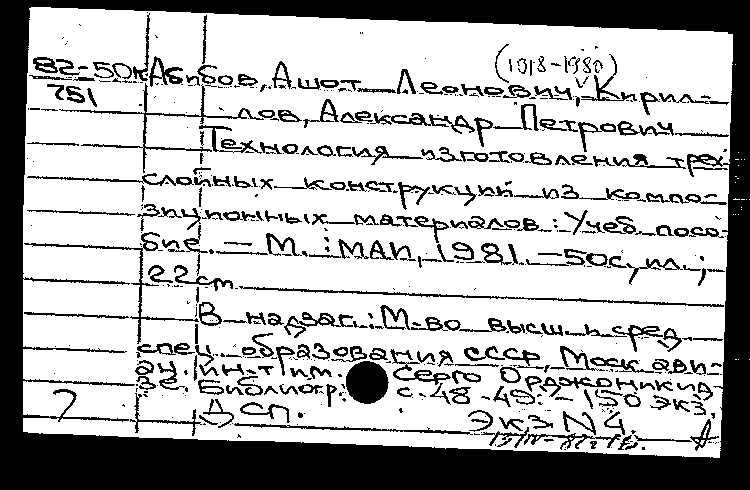 (1918-1980)
82-50к Абибов, Ашот Леонович, Кирил-
751
лов, Александр Петрович
Технология изготовления трех
слойных конструкций из компо-
зиционных материалов : Учеб. посо-
бие. — М. : МАИ, 1981. — 50с., ил. ;
22см
В надзаг. : М-во высш. и сред.
спец. образования СССР, Моск. ави-
ац. ин-т им. Серго Орджоникид-
зе. Библиогр.: с. 48-49. - 150 экз.
ДСП. Экз. N 4.
А